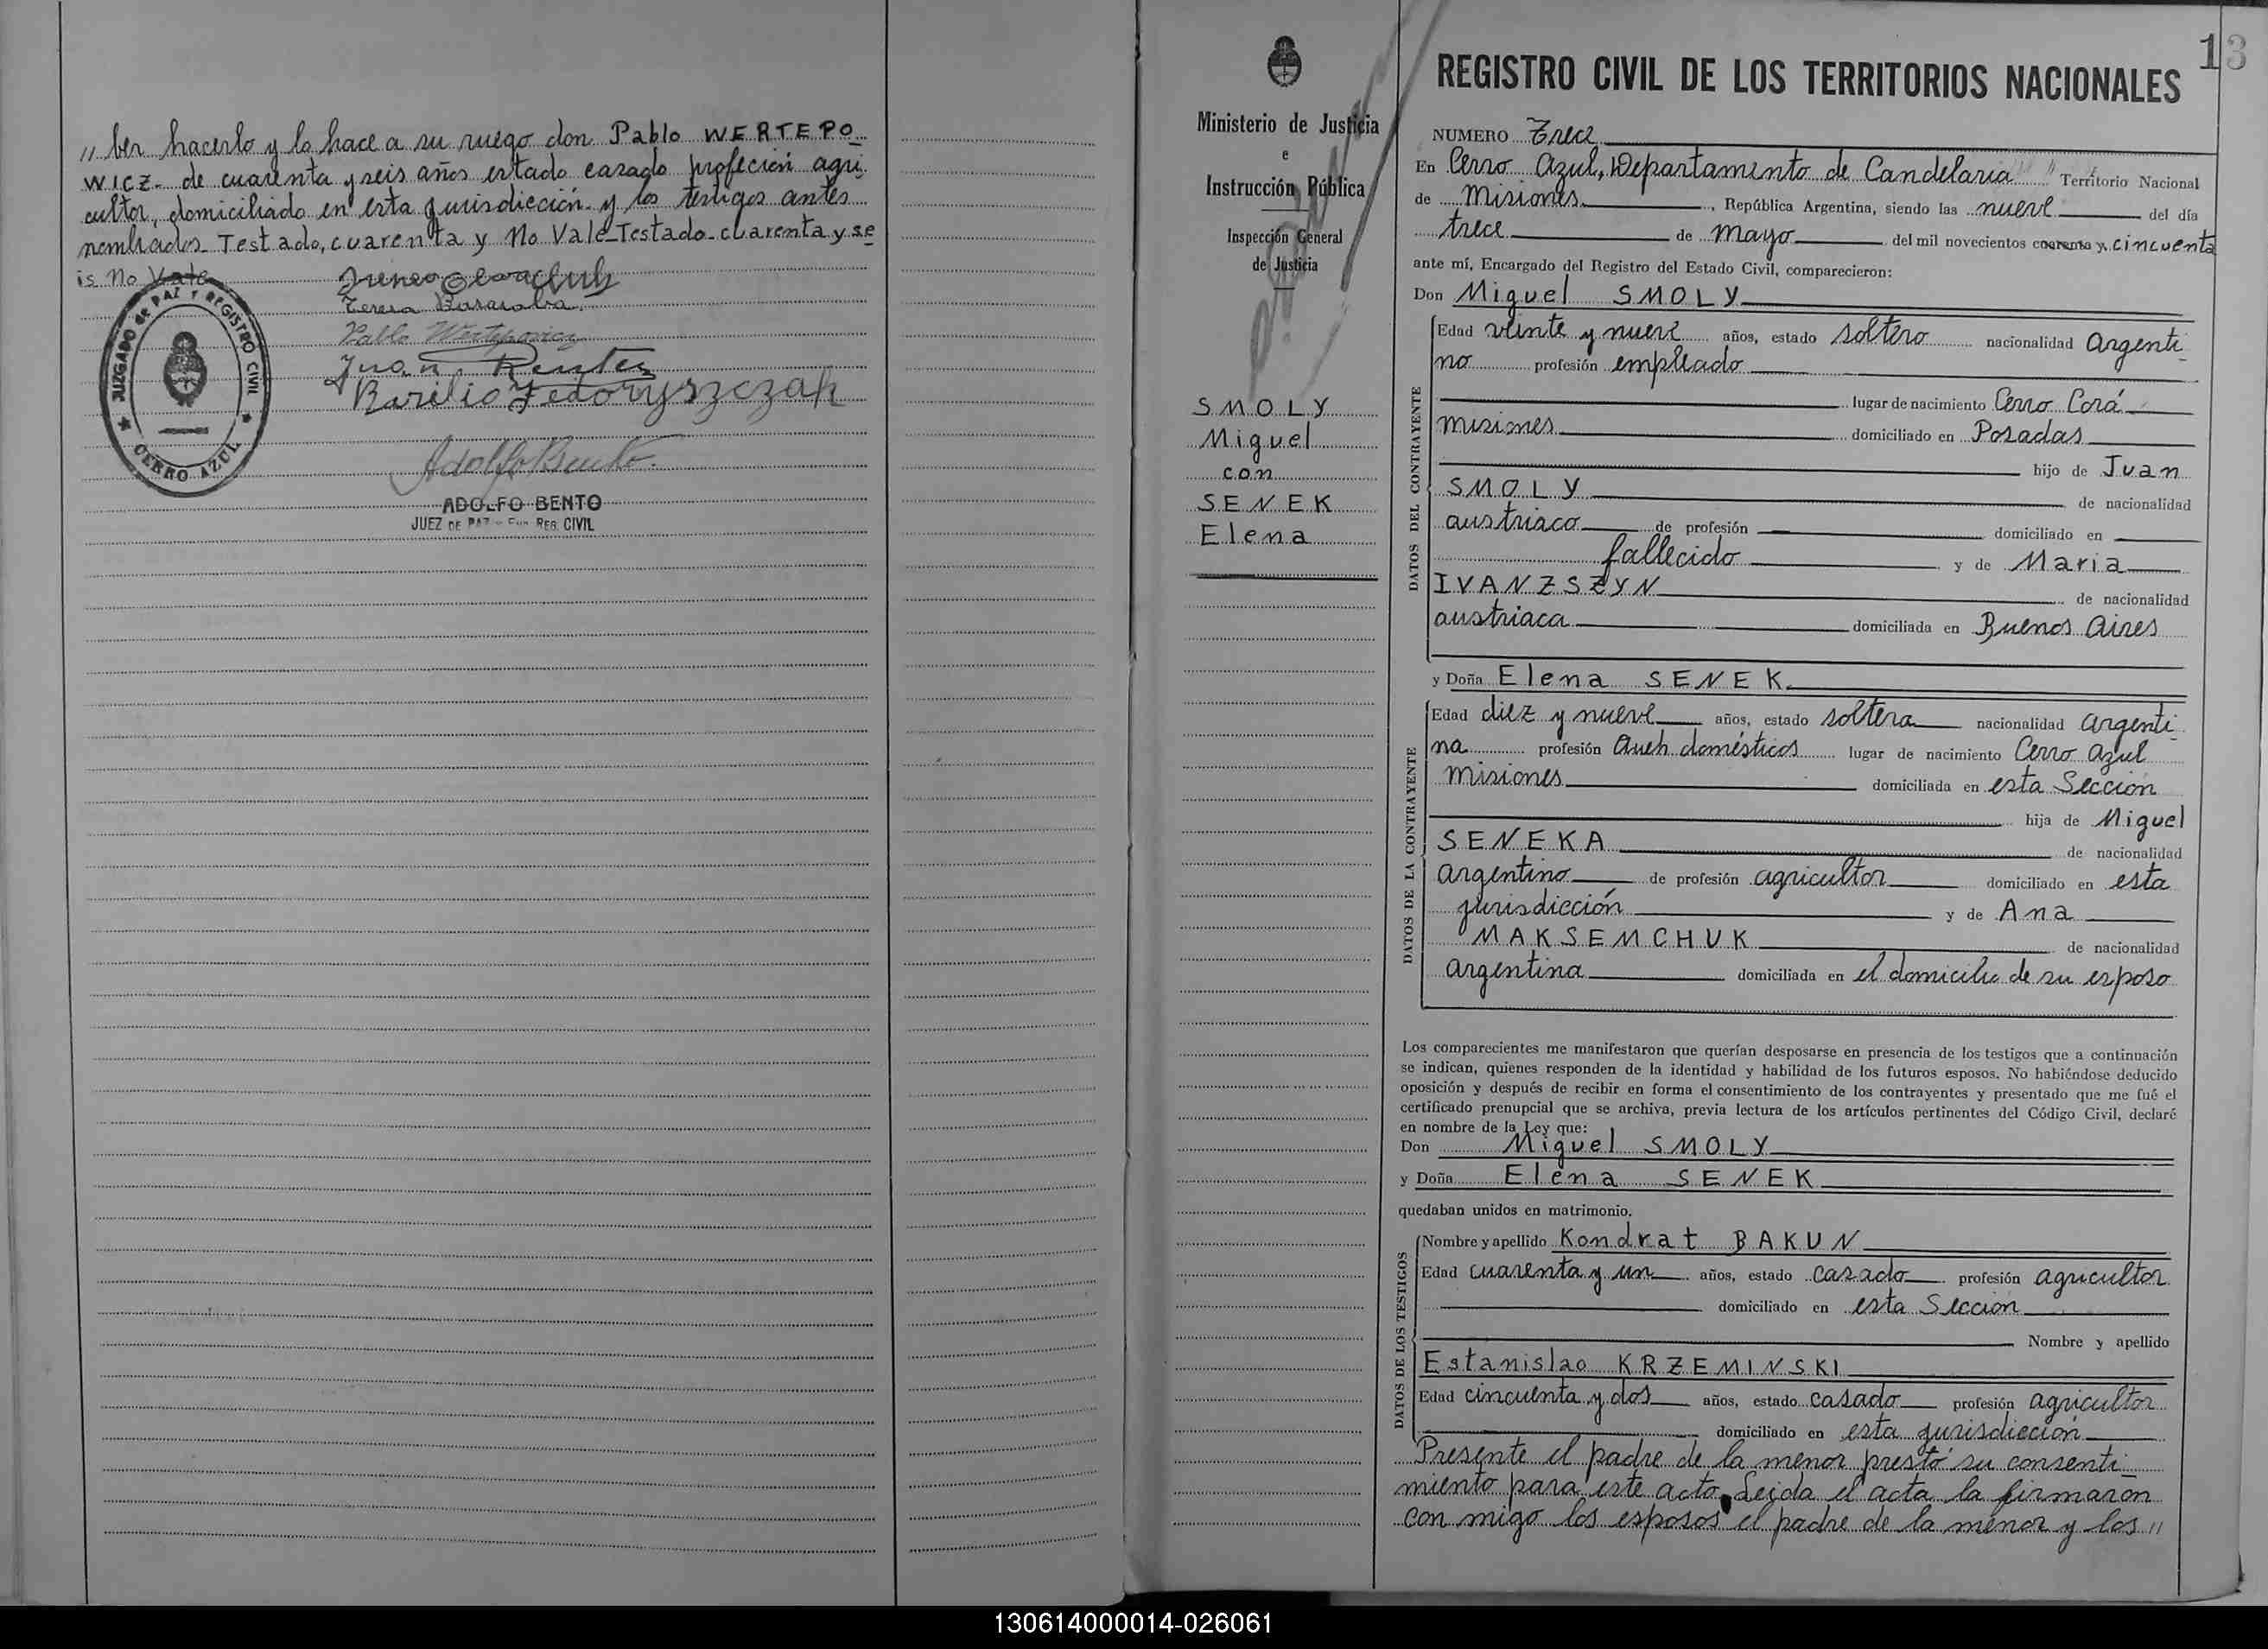 „ ber hacerlo y lo hace a su ruego don Pablo WERTEPO
WICZ- de cuarenta y seis años estado casado profeción agri
cultor, domiciliado en esta jurisdicción- y los testigos antes
nombrados- Testado, cuarenta y No Vale-Testado-cuarenta y se
is No Vale
Teresa
Pablo
Juan
Basilio Fedoryszczak
JUZGADO de PAZ Y REGISTRO CIVIL
CERRO AZUL
Adolfo Bento.
ADOLFO BENTO
JUEZ DE PAZ y Enc. REG. CIVIL
Ministerio de Justicia
e
Instrucción Pública
Inspección General
de Justicia
SMOLY
Miguel
con
SENEK
Elena
13
REGISTRO CIVIL DE LOS TERRITORIOS NACIONALES
NUMERO Trece
En Cerro Azul, Departamento de Candelaria " " Territorio Nacional
de Misiones, República Argentina, siendo las nueve del día
trece de Mayo del mil novecientos cuarenta y cincuenta
ante mí, Encargado del Registro del Estado Civil, comparecieron:
Don Miguel SMOLY
DATOS DEL CONTRAYENTE
Edad veinte y nueve años, estado soltero nacionalidad Argenti
no profesión empleado
lugar de nacimiento Cerro Corá
Misiones domiciliado en Posadas
hijo de Juan
SMOLY de nacionalidad
austriaco de profesión domiciliado en
fallecido y de Maria
IVANZSZYN de nacionalidad
austriaca domiciliada en Buenos Aires
y Doña Elena SENEK
DATOS DE LA CONTRAYENTE
Edad diez y nueve años, estado soltera nacionalidad argenti
na profesión Queh. domésticos lugar de nacimiento Cerro Azul
Misiones domiciliada en esta Sección
hija de Miguel
SENEKA de nacionalidad
argentino de profesión agricultor domiciliado en esta
jurisdicción y de Ana
MAKSEMCHUK de nacionalidad
argentina domiciliada en el domicilio de su esposo
Los comparecientes me manifestaron que querían desposarse en presencia de los testigos que a continuación
se indican, quienes responden de la identidad y habilidad de los futuros esposos. No habiéndose deducido
oposición y después de recibir en forma el consentimiento de los contrayentes y presentado que me fué el
certificado prenupcial que se archiva, previa lectura de los artículos pertinentes del Código Civil, declaré
en nombre de la Ley que:
Don Miguel SMOLY
y Doña Elena SENEK
quedaban unidos en matrimonio.
DATOS DE LOS TESTIGOS
Nombre y apellido Kondrat BAKUN
Edad cuarenta y un años, estado casado profesión agricultor
domiciliado en esta Sección
Nombre y apellido
Estanislao KRZEMINSKI
Edad cincuenta y dos años, estado casado profesión agricultor
domiciliado en esta jurisdicción
Presente el padre de la menor prestó su consenti
miento para este acto. Leída el acta la firmaron
con migo los esposos el padre de la menor y los "
130614000014-026061